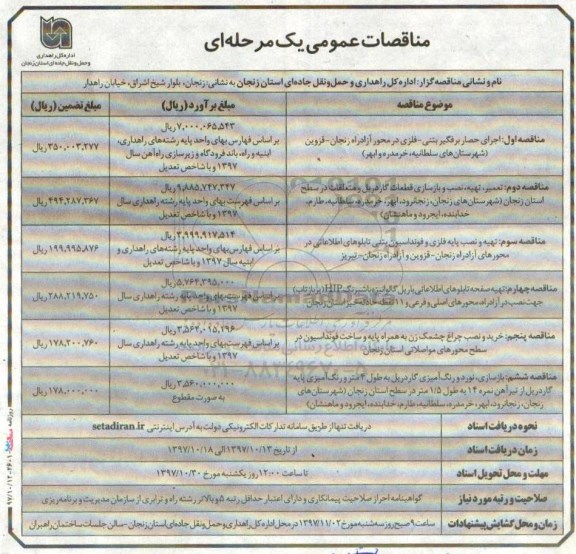 مناقصات عمومی یک مرحله‌ای
اداره کل راهداری
و حمل و نقل جاده‌ای استان زنجان
نام و نشانی مناقصه گزار: اداره کل راهداری و حمل و نقل جاده‌ای استان زنجان به نشانی: زنجان، بلوار شیخ اشراق، خیابان راهدار
موضوع مناقصه
مبلغ برآورد (ریال)
مبلغ تضمین (ریال)
مناقصه اول: اجرای حصار برفگیر بتنی - فلزی در محور آزادراه زنجان - قزوین
(شهرستان‌های سلطانیه، خرمدره و ابهر)
۷,۰۰۰,۰۶۵,۵۴۳ ریال
بر اساس فهارس بهای واحد پایه رشته‌های راهداری،
ابنیه و راه، باند فرودگاه و زیرسازی راه آهن سال
۱۳۹۷ و با شاخص تعدیل
۳۵۰,۰۰۳,۲۷۷ ریال
مناقصه دوم: تعمیر، تهیه، نصب و بازسازی قطعات گاردریل و متعلقات در سطح
استان زنجان (شهرستان‌های زنجان، زنجانرود، ابهر، خرمدره، سلطانیه، طارم،
خدابنده، ایجرود و ماهنشان)
۹,۸۸۵,۷۴۷,۳۴۷ ریال
بر اساس فهرست بهای واحد پایه رشته راهداری سال
۱۳۹۷ و با شاخص تعدیل
۴۹۴,۲۸۷,۳۶۷ ریال
مناقصه سوم: تهیه و نصب پایه فلزی و فونداسیون بتنی تابلوهای اطلاعاتی در
محورهای آزادراه زنجان - قزوین و آزادراه زنجان - تبریز
۳,۹۹۹,۹۱۷,۵۱۴ ریال
بر اساس فهارس بهای واحد پایه رشته‌های راهداری و
ابنیه سال ۱۳۹۷ و با شاخص تعدیل
۱۹۹,۹۹۵,۸۷۶ ریال
مناقصه چهارم: تهیه صفحه تابلوهای اطلاعاتی با ریل گالوانیزه با شبرنگ HIP
جهت نصب در آزادراه، محورهای اصلی و فرعی و ۱۱ نقطه حادثه خیز استان زنجان
۵,۷۶۴,۳۹۵,۰۰۰ ریال
بر اساس فهرست بهای واحد پایه رشته راهداری سال
۱۳۹۷ و با شاخص تعدیل
۲۸۸,۲۱۹,۷۵۰ ریال
مناقصه پنجم: خرید و نصب چراغ چشمک زن به همراه پایه و ساخت فونداسیون در
سطح محورهای مواصلاتی استان زنجان
۳,۵۶۴,۰۱۵,۱۹۶ ریال
بر اساس فهرست بهای واحد پایه رشته راهداری سال
۱۳۹۷ و با شاخص تعدیل
۱۷۸,۲۰۰,۷۶۰ ریال
مناقصه ششم: بازسازی، نورد و رنگ آمیزی گاردریل به طول ۴ متر و رنگ آمیزی پایه
گاردریل از تیر آهن نمره ۱۴ به طول ۱/۵ متر در سطح استان زنجان (شهرستان‌های
زنجان، زنجانرود، ابهر، خرمدره، سلطانیه، طارم، خدابنده، ایجرود و ماهنشان)
۳,۵۶۰,۰۰۰,۰۰۰ ریال
به صورت مقطوع
۱۷۸,۰۰۰,۰۰۰ ریال
نحوه دریافت اسناد
دریافت تنها از طریق سامانه تدارکات الکترونیکی دولت به آدرس اینترنتی setadiran.ir
زمان دریافت اسناد
از تاریخ ۱۳۹۷/۱۰/۱۳ الی ۱۳۹۷/۱۰/۱۸
مهلت و محل تحویل اسناد
تا ساعت ۱۲:۰۰ روز یکشنبه مورخ ۱۳۹۷/۱۰/۳۰
صلاحیت و رتبه مورد نیاز
گواهینامه احراز صلاحیت پیمانکاری و دارای اعتبار حداقل رتبه ۵ و بالاتر رشته راه و ترابری از سازمان مدیریت و برنامه‌ریزی
زمان و محل گشایش پیشنهادات
ساعت ۹ صبح روز سه شنبه مورخ ۱۳۹۷/۱۱/۰۲ در محل اداره کل راهداری و حمل و نقل جاده‌ای استان زنجان - سالن جلسات ساختمان راهبران